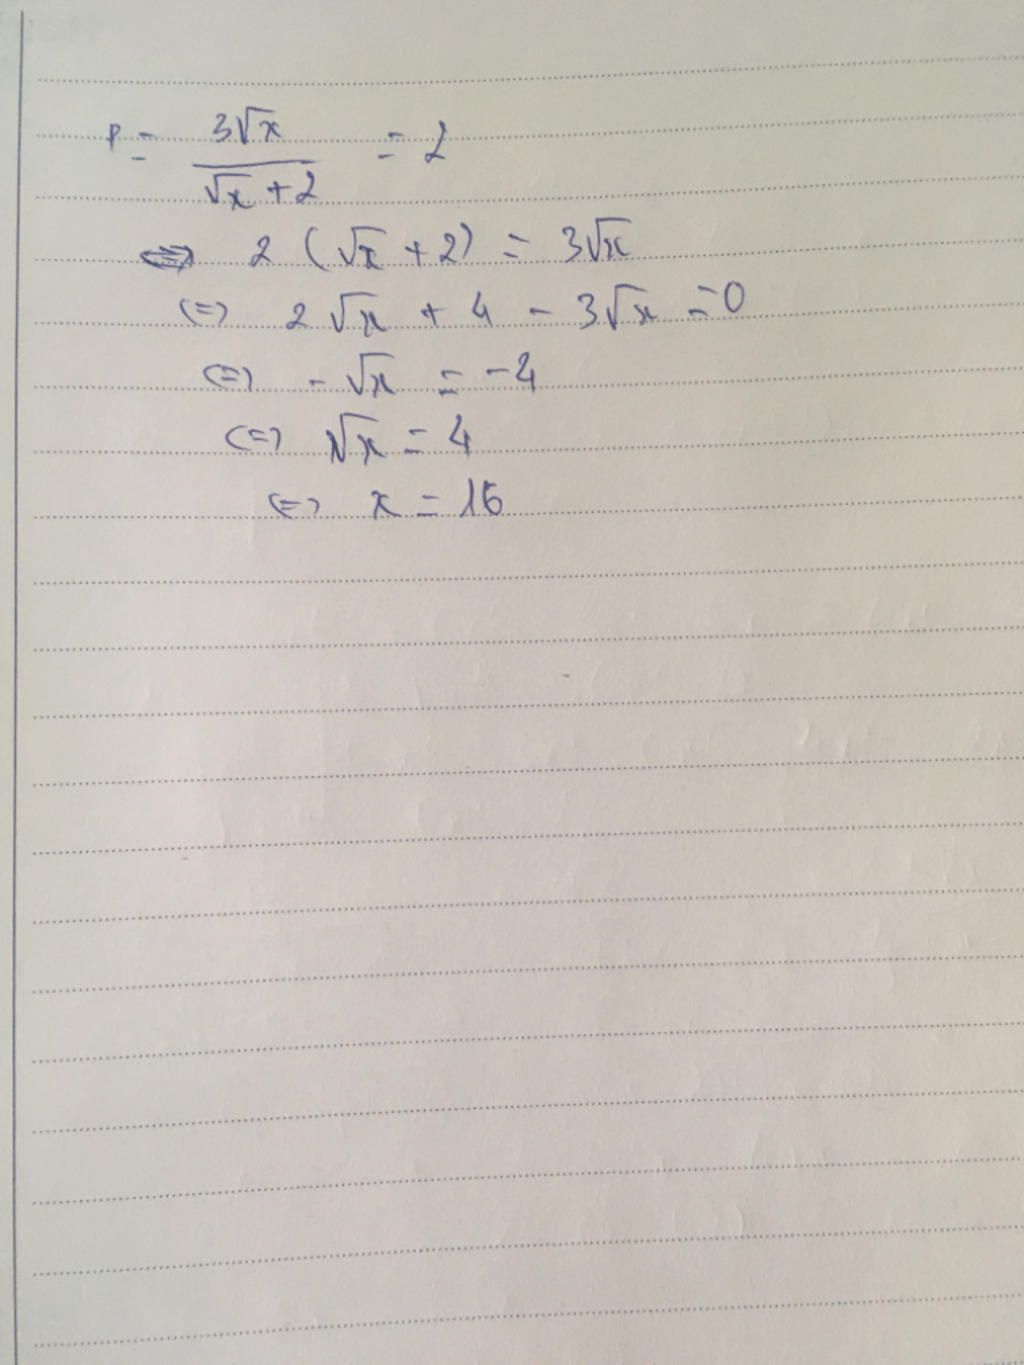 P = 3√x / √x + 2 = 2
<=> 2 (√x + 2) = 3√x
<=> 2√x + 4 - 3√x = 0
<=> -√x = -4
<=> √x = 4
<=> x = 16